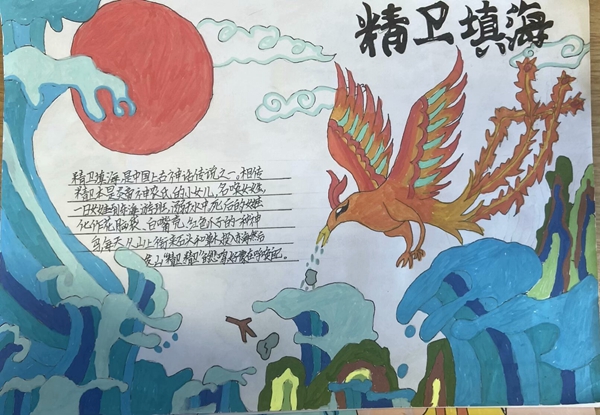 精卫填海
精卫填海是中国上古神话传说之一,相传
精卫本是炎帝神农氏的小女儿,名唤女娃,
一日女娃到东海游玩,溺于水中,死后的女娃
化作花脑袋、白嘴壳、红色爪子的一种神
鸟每天从山上衔来石头和草木,投入东海,然后
发出"精卫、精卫"的